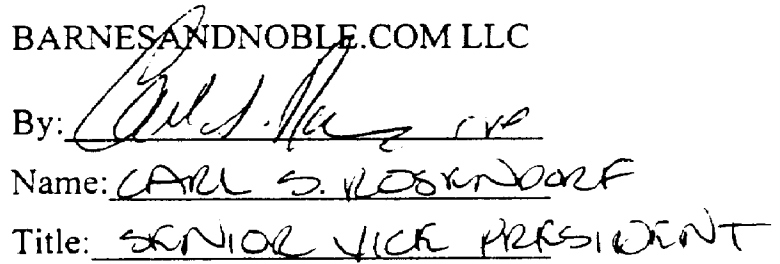 BARNESANDNOBLE.COM LLC
By: Carl S. Ros SVP
Name: CARL S. ROSENDORF
Title: SENIOR VICE PRESIDENT